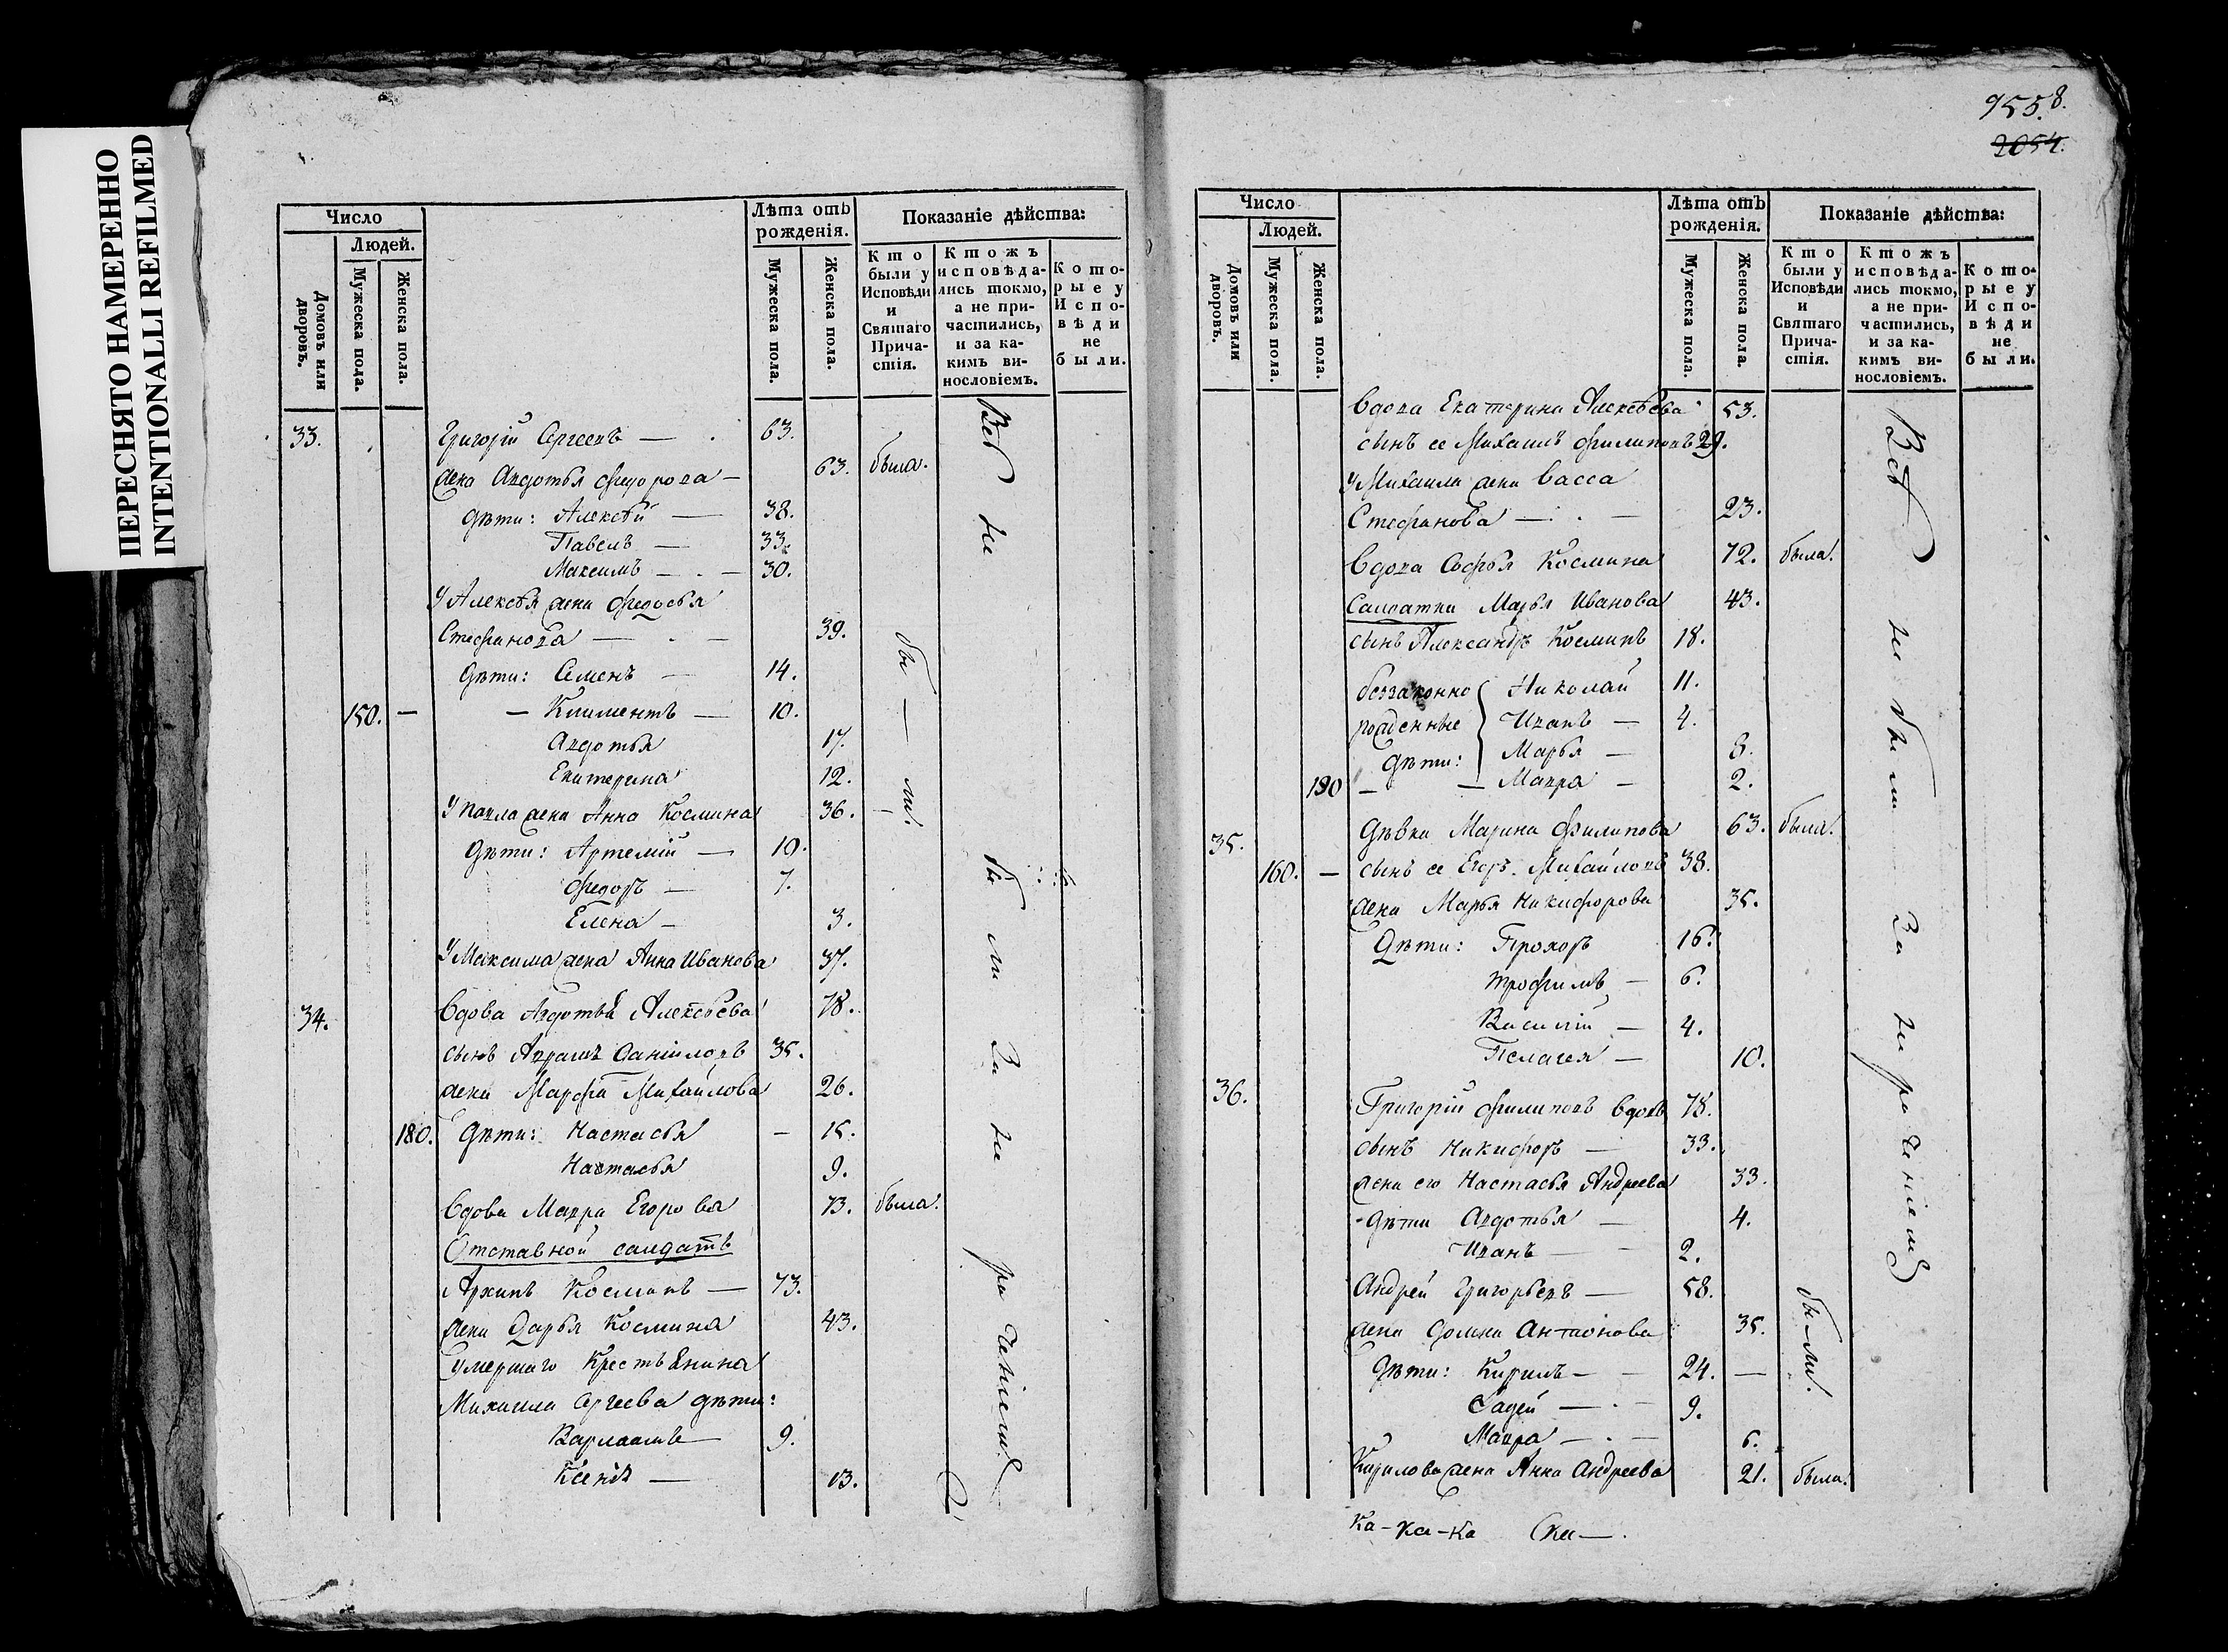 ПЕРЕСНЯТО НАМЕРЕННО
INTENTIONALLI REFILMED
Число
Людей.
Домовъ или дворовъ.
Мужеска пола.
Женска пола.
Лѣта отъ рожденія.
Мужеска пола.
Женска пола.
Показаніе дѣйства:
Кто были у Исповѣди и Святаго Причастія.
Ктожъ исповѣдались токмо, а не причастились, и за какимъ винословіемъ.
Которые у Исповѣди не были.
33. Григорій Сергеевъ — 63.
жена Авдотья Федорова — 63. была.
дѣти: Алексѣй — 38.
Павелъ — 33.
Максимъ — 30.
У Алексѣя жена Федосья
Стефанова — 39.
дѣти: Семенъ — 14.
150. — — Климентъ — 10.
Авдотья 17.
Екатерина 12.
У Павла жена Анна Космина 36. —
дѣти: Артемій — 10.
Федоръ — 7.
Елена — 3.
У Максима жена Анна Иванова 37.
34. Вдова Авдотья Алексѣева 78.
сынъ Авраамъ Даніиловъ 35.
жена Марфа Михайлова 26.
180. дѣти: Настасья — 15.
Настасья 9.
Вдова Мавра Егорова 73. была.
Отставной салдатъ
Архипъ Косминъ — 73.
жена Дарья Космина 43.
Умершаго Крестьянина
Михаила Сергеева дѣти:
Варлаамъ 9.
Ксенія — 13.
бы — ли.
Всѣ не бы ли за не раченіемъ
9558.
2054.
Число
Людей.
Домовъ или дворовъ.
Мужеска пола.
Женска пола.
Лѣта отъ рожденія.
Мужеска пола.
Женска пола.
Показаніе дѣйства:
Кто были у Исповѣди и Святаго Причастія.
Ктожъ исповѣдались токмо, а не причастились, и за какимъ винословіемъ.
Которые у Исповѣди не были.
Вдова Екатерина Алексѣева 53.
сынъ ее Михаилъ Филиповъ 29.
У Михаила жена Васса
Стефанова — 23.
Вдова Софья Космина 72. была.
Салдатка Марья Иванова 43.
сынъ Александръ Косминъ 18.
беззаконно Николай 11.
рожденные Иванъ — 4.
дѣти: Марья — 8.
190 — — Мавра — 2.
35. Дѣвка Марина Филипова 63. была.
160. — сынъ ее Егоръ Михайловъ 38.
жена Марья Никифорова 35.
Дѣти: Прохоръ 16.
Трофимъ — 6.
Василій — 4.
Пелагея — 10.
36. Григорій Филиповъ вдовъ 78.
сынъ Никифоръ — 33.
жена его Настасья Андреева 33.
дѣти Авдотья — 4.
Иванъ — 2.
Андрей Григорьевъ — 58.
жена Домна Антонова 35.
Дѣти: Кирилъ — 24. —
Фадей — 9.
Мавра — 6.
Кирилова жена Анна Андреева 21. была.
бы-ли.
Всѣ не бы ли за не ра ченіемъ
Ка - ка - ка